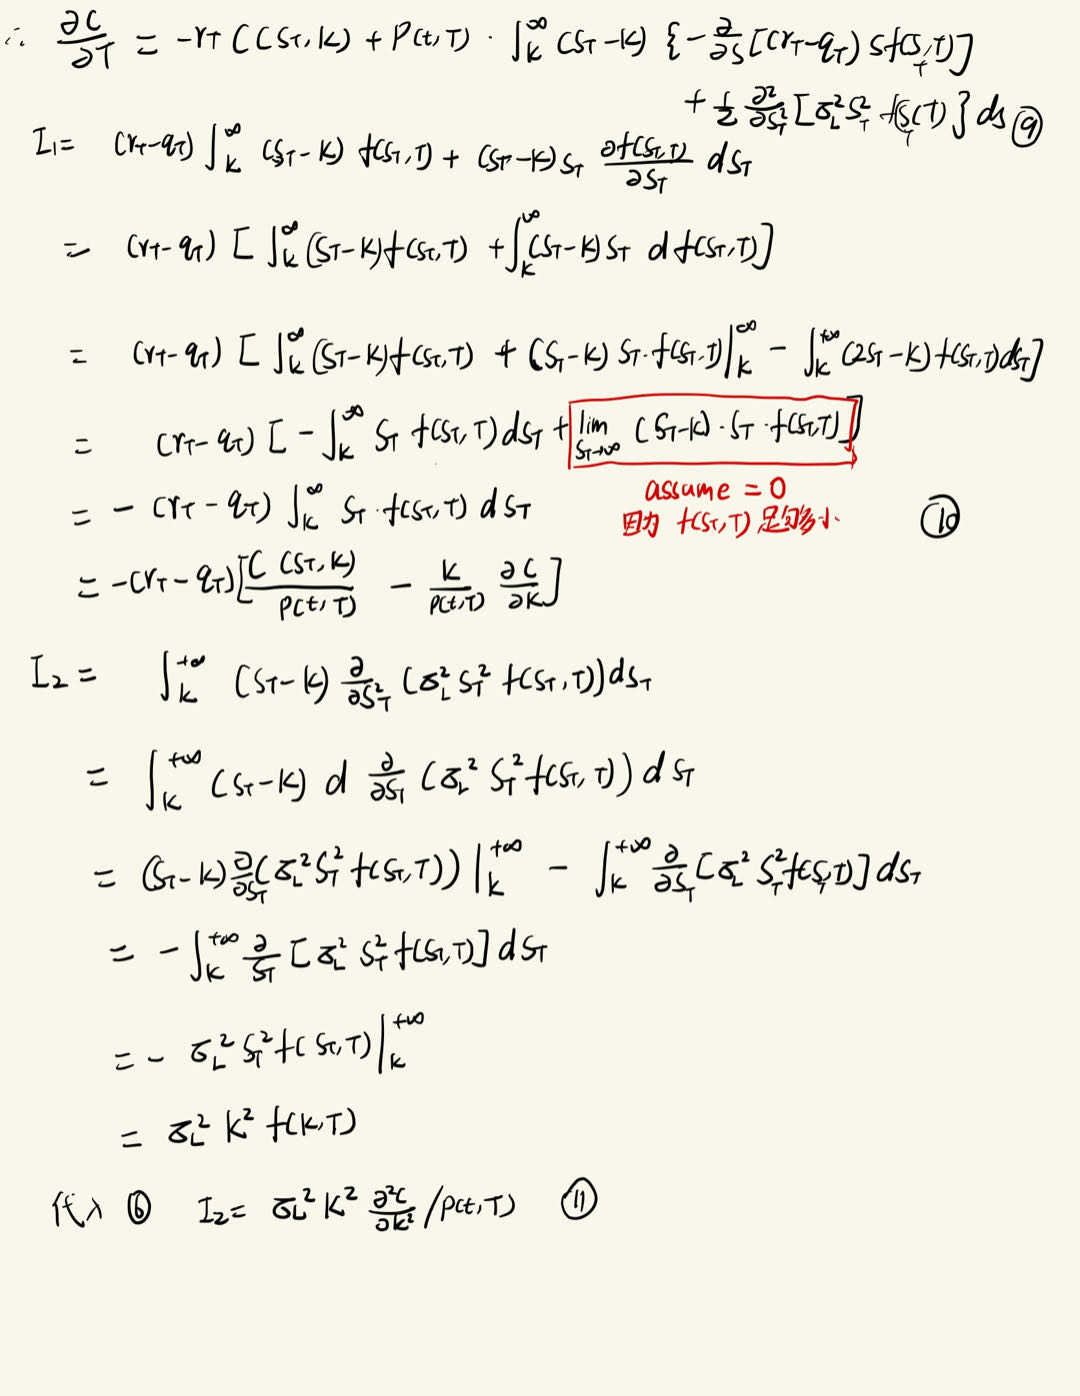 ∴ ∂C/∂T = -r_T C(S_T, K) + P(t,T) · ∫_K^∞ (S_T - K) {-∂/∂S [(r_T - q_T) S f(S_T, T)]
+ 1/2 ∂²/∂S_T² [σ_L² S_T² f(S_T, T)]} dS ⑨
I₁ = (r_T - q_T) ∫_K^∞ (S_T - K) f(S_T, T) + (S_T - K) S_T ∂f(S_T, T)/∂S_T dS_T
= (r_T - q_T) [∫_K^∞ (S_T - K) f(S_T, T) + ∫_K^∞ (S_T - K) S_T d f(S_T, T)]
= (r_T - q_T) [∫_K^∞ (S_T - K) f(S_T, T) + (S_T - K) S_T · f(S_T, T)|_K^∞ - ∫_K^{+∞} (2S_T - K) f(S_T, T) dS_T]
= (r_T - q_T) [-∫_K^∞ S_T f(S_T, T) dS_T + lim_{S_T→∞} (S_T - K) · S_T · f(S_T, T)]
assume = 0
= -(r_T - q_T) ∫_K^∞ S_T · f(S_T, T) dS_T 因为 f(S_T, T) 足够多小 ⑩
= -(r_T - q_T) [C(S_T, K)/P(t,T) - K/P(t,T) ∂C/∂K]
I₂ = ∫_K^{+∞} (S_T - K) ∂/∂S_T² (σ_L² S_T² f(S_T, T)) dS_T
= ∫_K^{+∞} (S_T - K) d ∂/∂S_T (σ_L² S_T² f(S_T, T)) dS_T
= (S_T - K) ∂/∂S_T (σ_L² S_T² f(S_T, T))|_K^{+∞} - ∫_K^{+∞} ∂/∂S_T [σ_L² S_T² f(S_T, T)] dS_T
= -∫_K^{+∞} ∂/S_T [σ_L² S_T² f(S_T, T)] dS_T
= - σ_L² S_T² f(S_T, T)|_K^{+∞}
= σ_L² K² f(K, T)
代入 ⑥ I₂ = σ_L² K² ∂²C/∂K² /P(t,T) ⑪